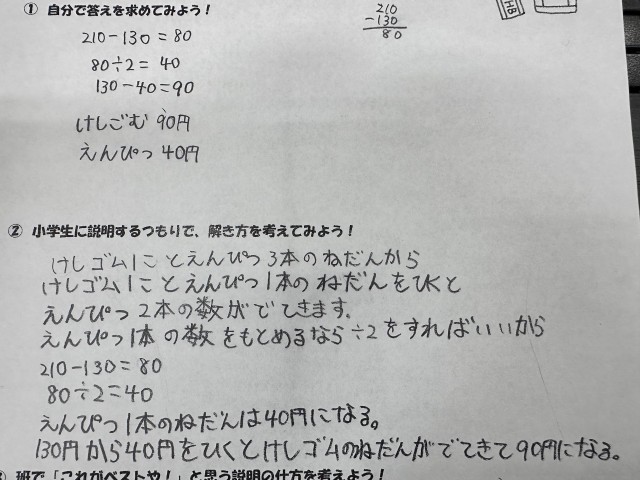 ① 自分で答えを求めてみよう！
210-130=80
80÷2=40
130-40=90
けしごむ 90円
えんぴつ 40円
210
-130
80
HB
② 小学生に説明するつもりで、解き方を考えてみよう！
けしゴム1ことえんぴつ3本のねだんから
けしゴム1ことえんぴつ1本のねだんをひくと
えんぴつ2本の数がでてきます.
えんぴつ1本の数をもとめるなら÷2をすればいいから
210-130=80
80÷2=40
えんぴつ1本のねだんは40円になる。
130円から40円をひくとけしゴムのねだんがでてきて90円になる。
班で「これがベストや！」と思う説明の仕方を考えよう！